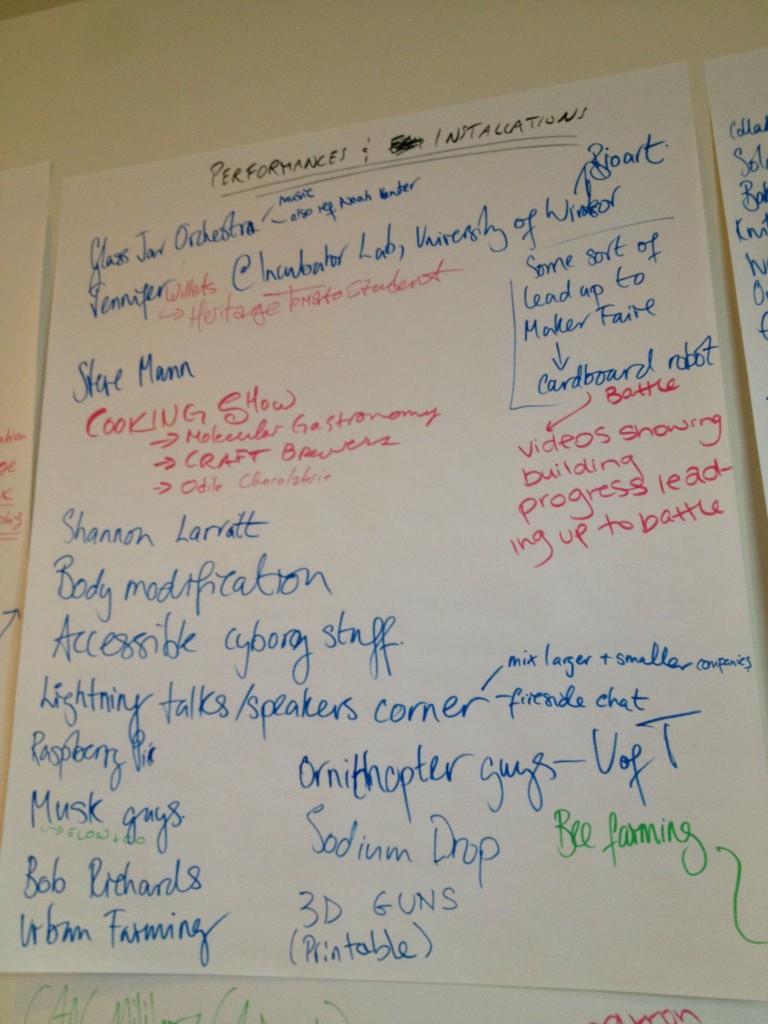 PERFORMANCES & INSTALLATIONS
Glass Jar Orchestra
music
also Noah
Jennifer Willets @ Incubator Lab, University of Windsor
Bioart
→ Heritage Tomato Statement
Some sort of
lead up to
Maker Faire
↓
cardboard robot
Battle
videos showing
building
progress lead-
ing up to battle
Steve Mann
COOKING SHOW
→ Molecular Gastronomy
→ CRAFT BREWERS
→ Odile Chocolaterie
Shannon Larratt
Body modification
Accessible cyborg stuff
Lightning talks/speakers corner
mix larger + smaller companies
-fireside chat
Raspberry Pie
Musk guys
→ ELON
Bob Richards
Urban Farming
Ornithopter guys - U of T
Sodium Drop
3D GUNS
(Printable)
Bee farming